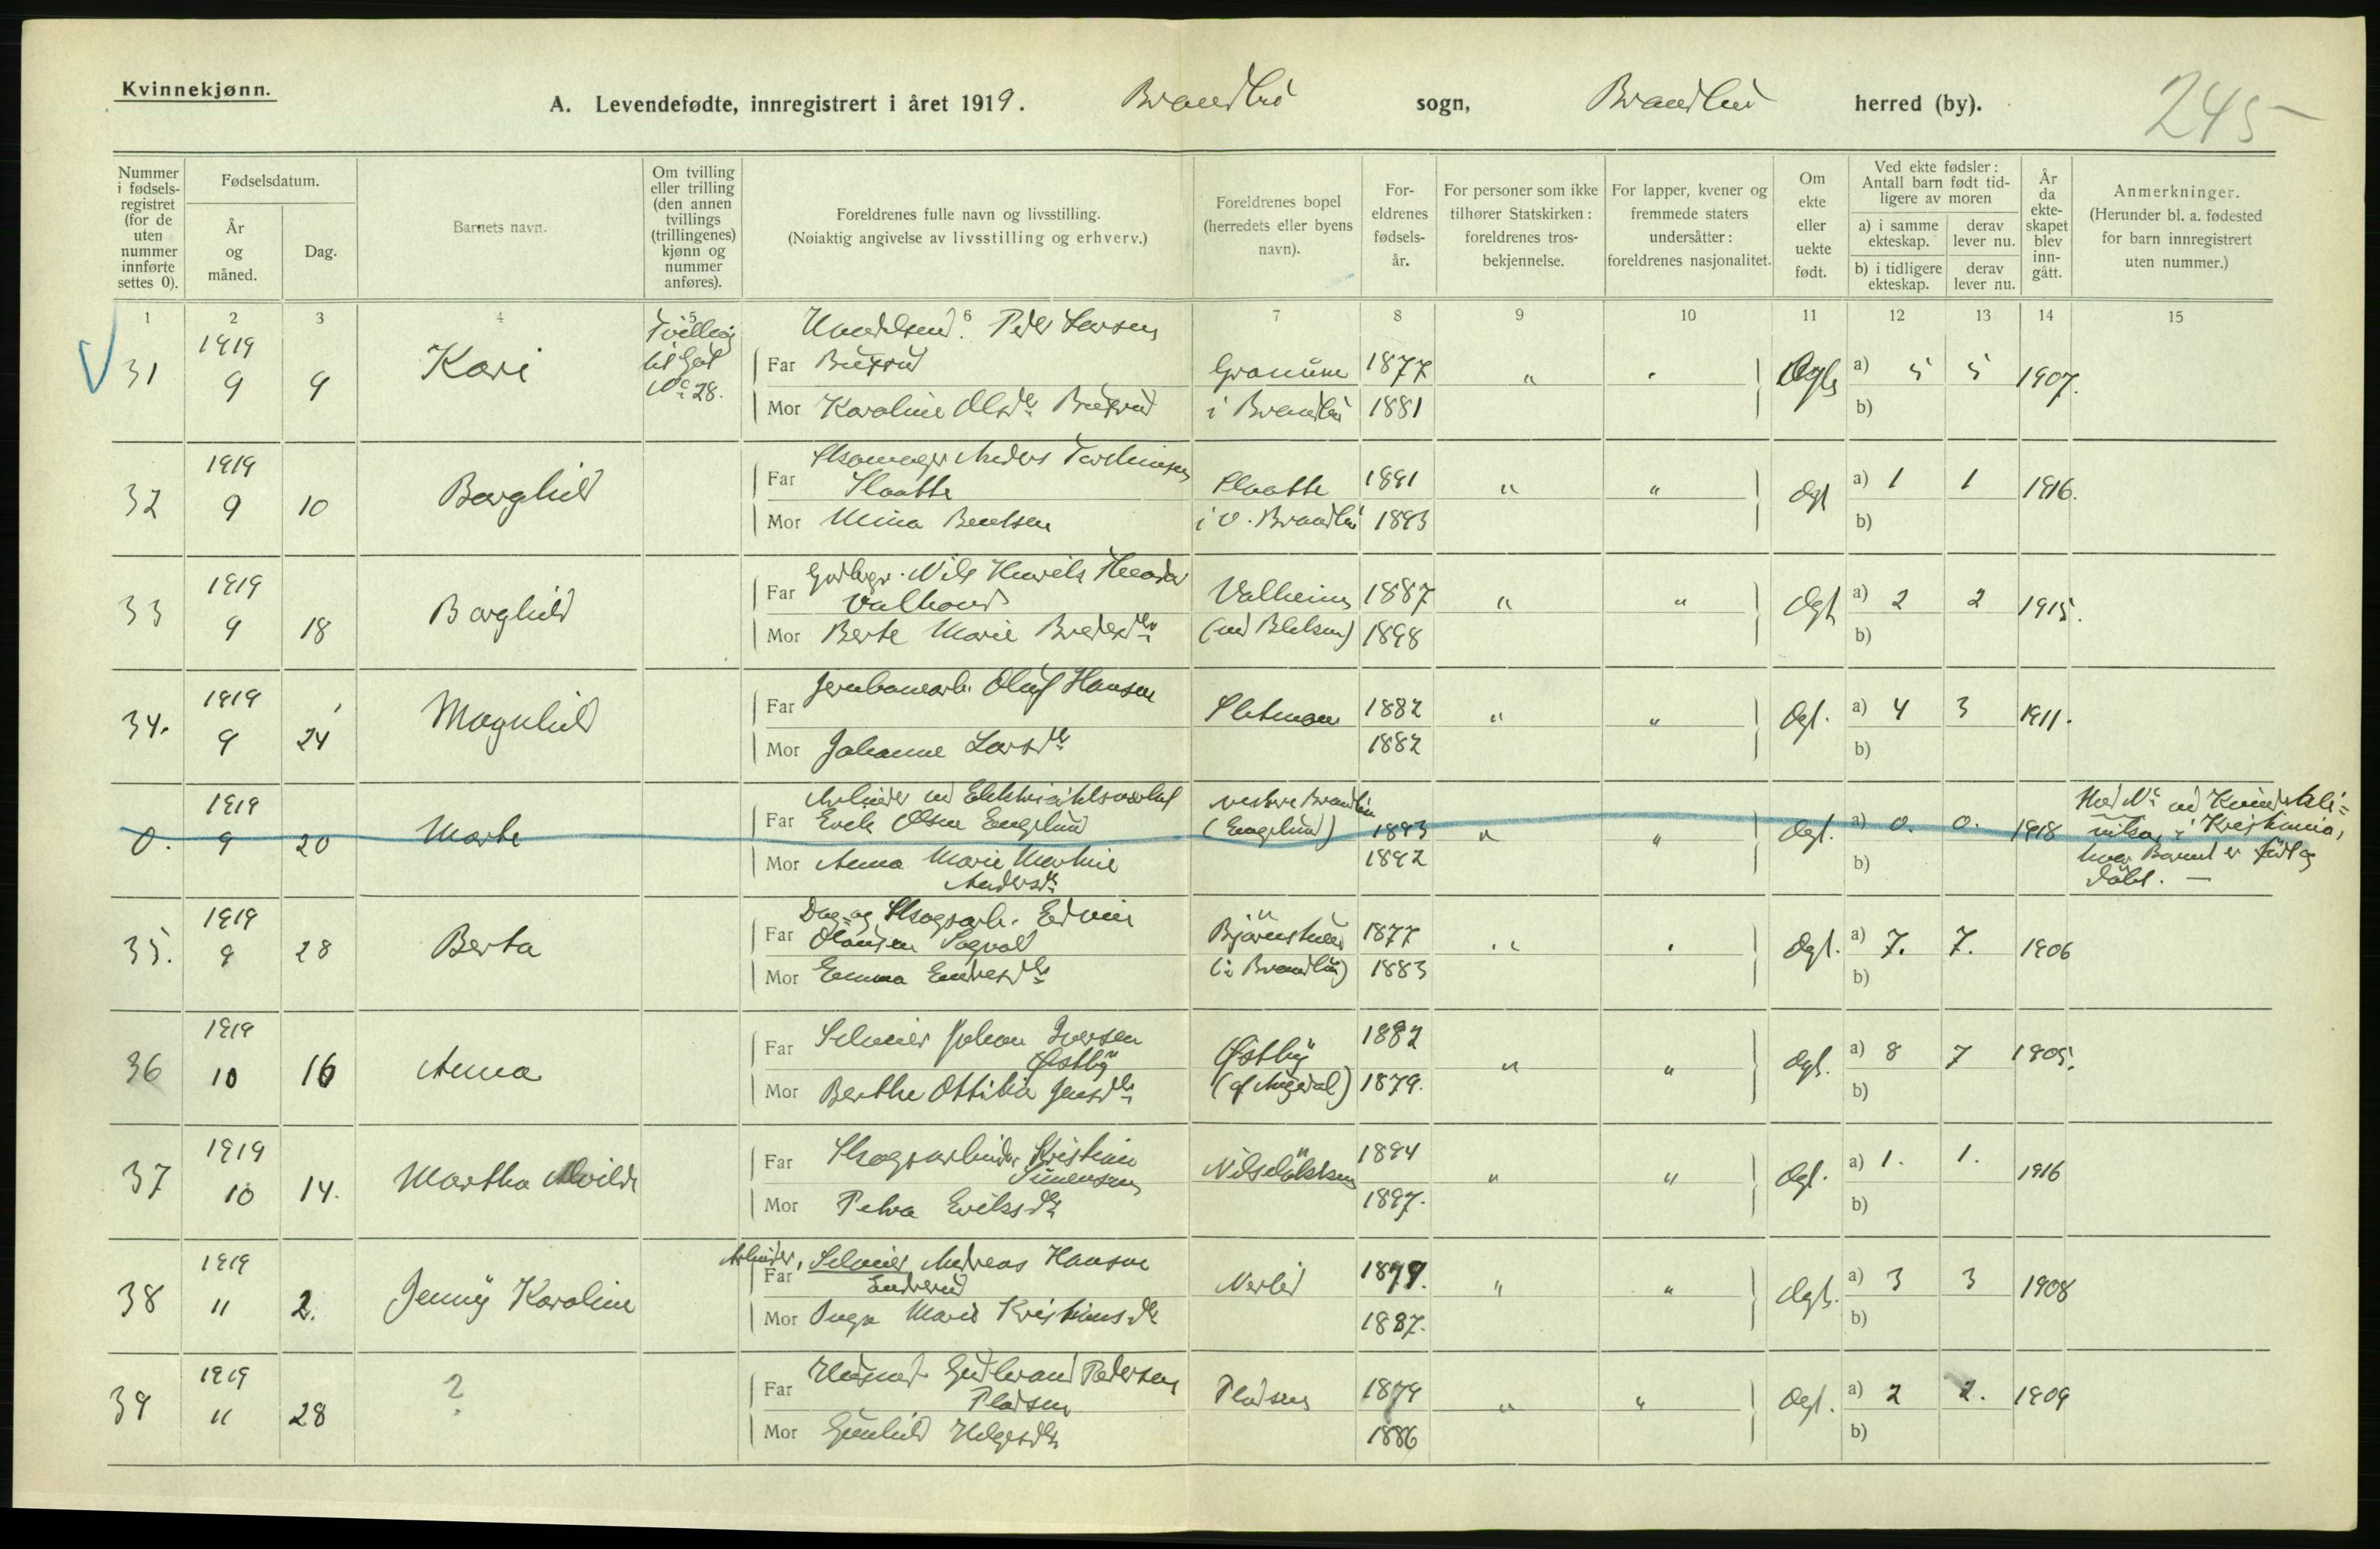 Kvinnekjønn.
A. Levendefødte, innregistrert i året 1919. Brandbu sogn, Brandbu herred (by).
245
Nummer i fødselsregistret (for de uten nummer innførte settes 0).
Fødselsdatum.
År og måned.
Dag.
Barnets navn.
Om tvilling eller trilling (den annen tvillings (trillingenes) kjønn og nummer anføres).
Foreldrenes fulle navn og livsstilling.
(Nøiaktig angivelse av livsstilling og erhverv.)
Foreldrenes bopel (herredets eller byens navn).
Foreldrenes fødselsår.
For personer som ikke tilhører Statskirken: foreldrenes trosbekjennelse.
For lapper, kvener og fremmede staters undersåtter: foreldrenes nasjonalitet.
Om ekte eller uekte født.
Ved ekte fødsler: Antall barn født tidligere av moren
a) i samme ekteskap.
derav lever nu.
b) i tidligere ekteskap.
derav lever nu.
År da ekteskapet blev inngått.
Anmerkninger.
(Herunder bl. a. fødested for barn innregistrert uten nummer.)
1 2 3 4 5 6 7 8 9 10 11 12 13 14 15
31 1919 9 9 Kari Tvilling til Gut No 28.
Peder Larsen
Far 1877 " " a) 5 5 1907.
Mor Karoline Olsdtr i Brandbu 1881 b)
32 1919 9 10 Borghild
Anders
Far 1891 " " Ægt a) 1 1 1916.
Mor Mina Bentsen i v. Brandbu 1893 b)
33 1919 9 18 Borghild
Nils
Far 1887 " " Ægt a) 2 2 1915.
Mor Berte Marie 1898 b)
34. 1919 9 24 Magnhild
Jernbanearb. Oluf Hansen
Far 1882 " " Ægt. a) 4 3 1911.
Mor Johanne Larsdtr 1882 b)
0. 1919 9 20 Marte
Arbeider ved
Far Erik Olsen Englund vestre Brandbu (Englund) 1893 " " Ægt. a) 0. 0. 1918
Mor Anna Marie Martine Andersdtr 1892 b)
i Kristiania, hvor Barnet er født og døbt. —
35. 1919 9 28 Berta
Dag- og Skogsarb. Edvin
Far Olausen 1877 " " Ægt. a) 7. 7. 1906
Mor Emma (i Brandbu) 1883 b)
36 1919 10 16 Anna
Far Johan Iversen Østby Østby 1882 " " Ægt. a) 8 7 1905.
Mor Berthe Ottilia Jensdtr 1879. b)
37 1919 10 14. Martha Alvilde
Far Skogsarbeider Kristian Simensen 1894 " " Ægt. a) 1. 1. 1916
Mor Petra Eriksdtr 1897. b)
38 1919 11 2. Jenny Karoline
Arbeider, Andreas Hansen
Far 1879. " " Ægt. a) 3 3 1908
Mor Inga Marie Kristiansdtr 1887. b)
39 1919 11 28 ?
Gudbrand Pedersen
Far Pladsen Pladsen 1879 " " Ægt. a) 2 2. 1909
Mor Gunhild Helgesdtr 1886 b)